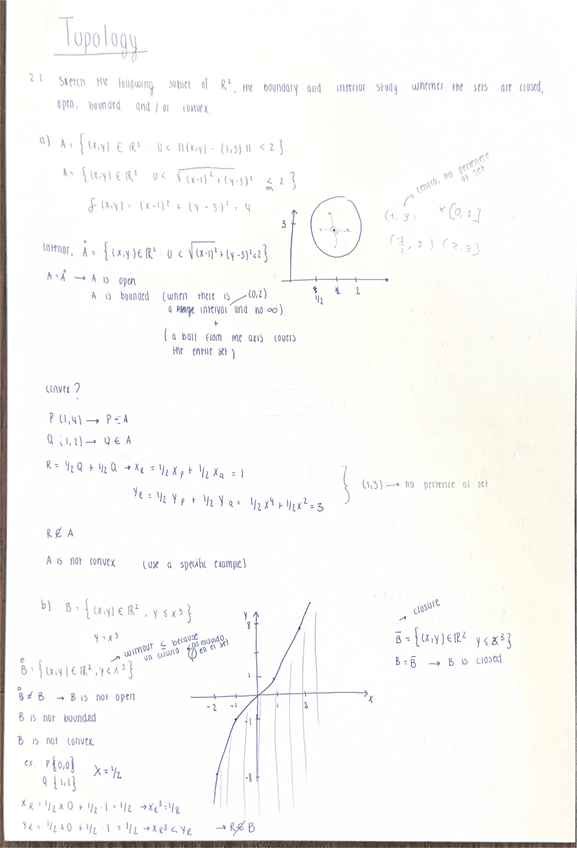 Topology
2.1 Sketch the following subset of R², the boundary and interior study whether the sets are closed,
open, bounded and / or convex.
a) A = {(x,y) ∈ R² : 0 < ||(x,y) - (1,3)|| < 2}
A = {(x,y) ∈ R² : 0 < √(x-1)² + (y-3)² ≤ 2}
m
f(x,y) = (x-1)² + (y-3)² = 4
centro, no pertenece
al set
(1, 3) x [0,1]
(1/2, 3) (2,3)
3
1/2 1 2
Interior, Å = {(x,y) ∈ R² : 0 < √(x-1)² + (y-3)² < 2}
A = Å → A is open
A is bounded (when there is (0,2)
a range interval and no ∞)
+
(a ball from the axis covers
the entire set)
convex?
P (1,4) → P ∈ A
Q (1,2) → Q ∈ A
R = 1/2 Q + 1/2 Q → x_R = 1/2 x_P + 1/2 x_Q = 1
y_R = 1/2 y_P + 1/2 y_Q = 1/2 x 4 + 1/2 x 2 = 3
(1,3) → no pertence al set
R ∉ A
A is not convex (use a specific example)
b) B = {(x,y) ∈ R², y ≤ x³}
y = x³
without ≤ because
un circulo no movido
en el set
B̊ = {(x,y) ∈ R², y < x³}
B̊ ≠ B → B is not open
B is not bounded
B is not convex
ex. P{0,0}
Q {1,1}
X = 1/2
x_R = 1/2 x 0 + 1/2 · 1 = 1/2 → x_R³ = 1/8
y_R = 1/2 x 0 + 1/2 · 1 = 1/2 → x_R³ < y_R → R ∉ B
y
8
1
-2 -1 1 2 x
-1
-8
closure
B̄ = {(x,y) ∈ R² y ≤ x³}
B = B̄ → B is closed